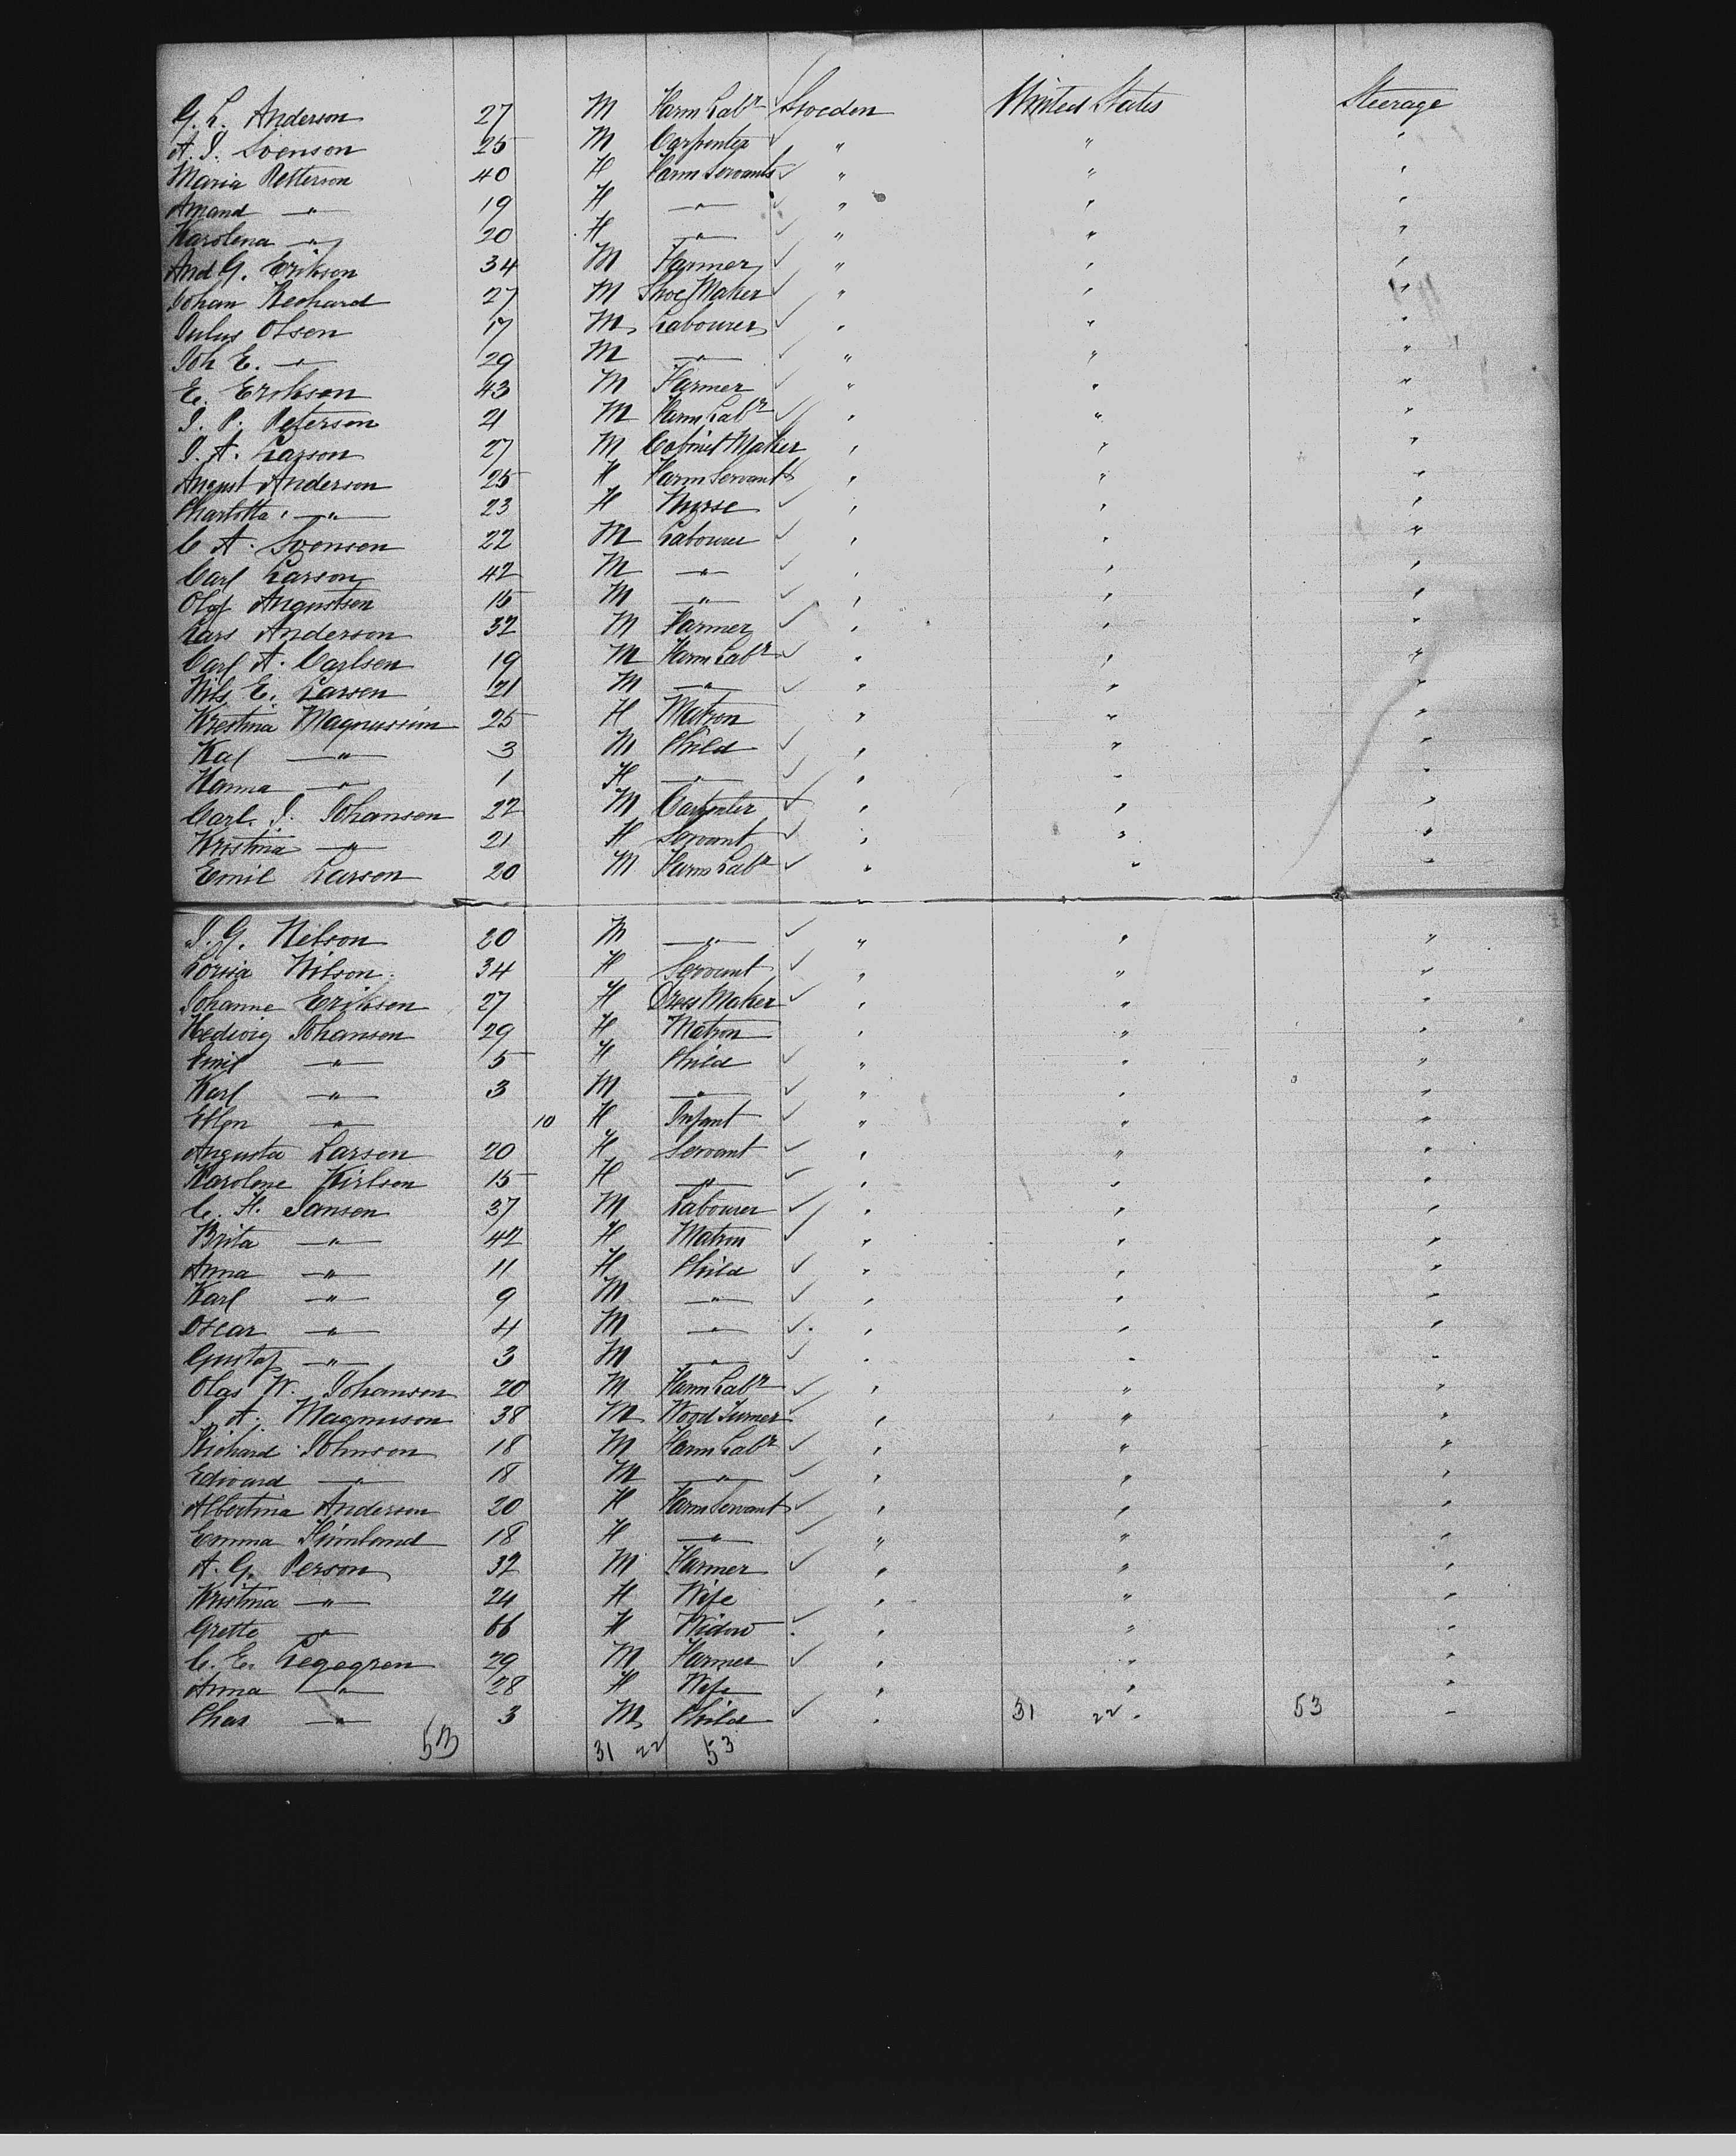 G. L. Anderson 27 M Farm Labr Sweden United States Steerage
A. I. Svenson 25 M Carpenter " " "
Maria Petterson 40 F Farm Servants " " "
Amand " 19 F " " " "
Karolena " 20 F " " " "
And G. Erikson 34 M Farmer " " "
Johan Rechard 27 M Shoe Maker " " "
Julus Olsen 17 M Labourer " " "
Joh E. " 29 M " " " "
E. Erikson 43 M Farmer " " "
I. P. Peterson 21 M Farm Labr " " "
I. A. Larson 27 M Cabinet Maker " " "
August Anderson 25 F Farm Servant " " "
Charlotta " 23 F Nurse " " "
C A. Svenson 22 M Labourer " " "
Carl Larson 42 M " " " "
Olof Augustsen 15 M " " " "
Lars Anderson 32 M Farmer " " "
Carl A. Carlsen 19 M Farm Labr " " "
Nils E. Larsen 21 M " " " "
Krestina 25 F Matron " " "
Kal " 3 M Child " " "
Hanna " 1 F " " " "
Carl I. Johansen 22 M Carpenter " " "
Kristina " 21 F Servant " " "
Emil Larson 20 M Farm Labr " " "
I. G. Nelson 20 M " " " "
Nilson 34 F Servant " " "
Johanne Eriksen 27 F Dress Maker " " "
Hedwig Johansen 29 F Matron " " "
Emil " 5 F Child " " "
Karl " 3 M " " " "
Ellen " 10 F Infant " " "
Augusta Larsen 20 F Servant " " "
Karolene 15 F " " " "
C. F. Jansen 37 M Labourer " " "
Brita " 42 F Matron " " "
Anna " 11 F Child " " "
Karl " 9 M " " " "
Oscar " 4 M " " " "
Gustaf " 3 M " " " "
Olas W. Johanson 20 M Farm Labr " " "
S. A. Magnuson 38 M Wood Turner " " "
Richard Johnson 18 M Farm Labr " " "
Edward " 18 M " " " "
Albertina Anderson 20 F Farm Servant " " "
Emma 18 F " " " "
A. G. Person 32 M Farmer " " "
Kristina " 24 F Wife " " "
Grette " 66 F Widow " " "
C. E. Legegren 29 M Farmer " " "
Anna " 28 F Wife " " "
Chas " 3 M Child " 31 22 " 53 "
53 31 22 53